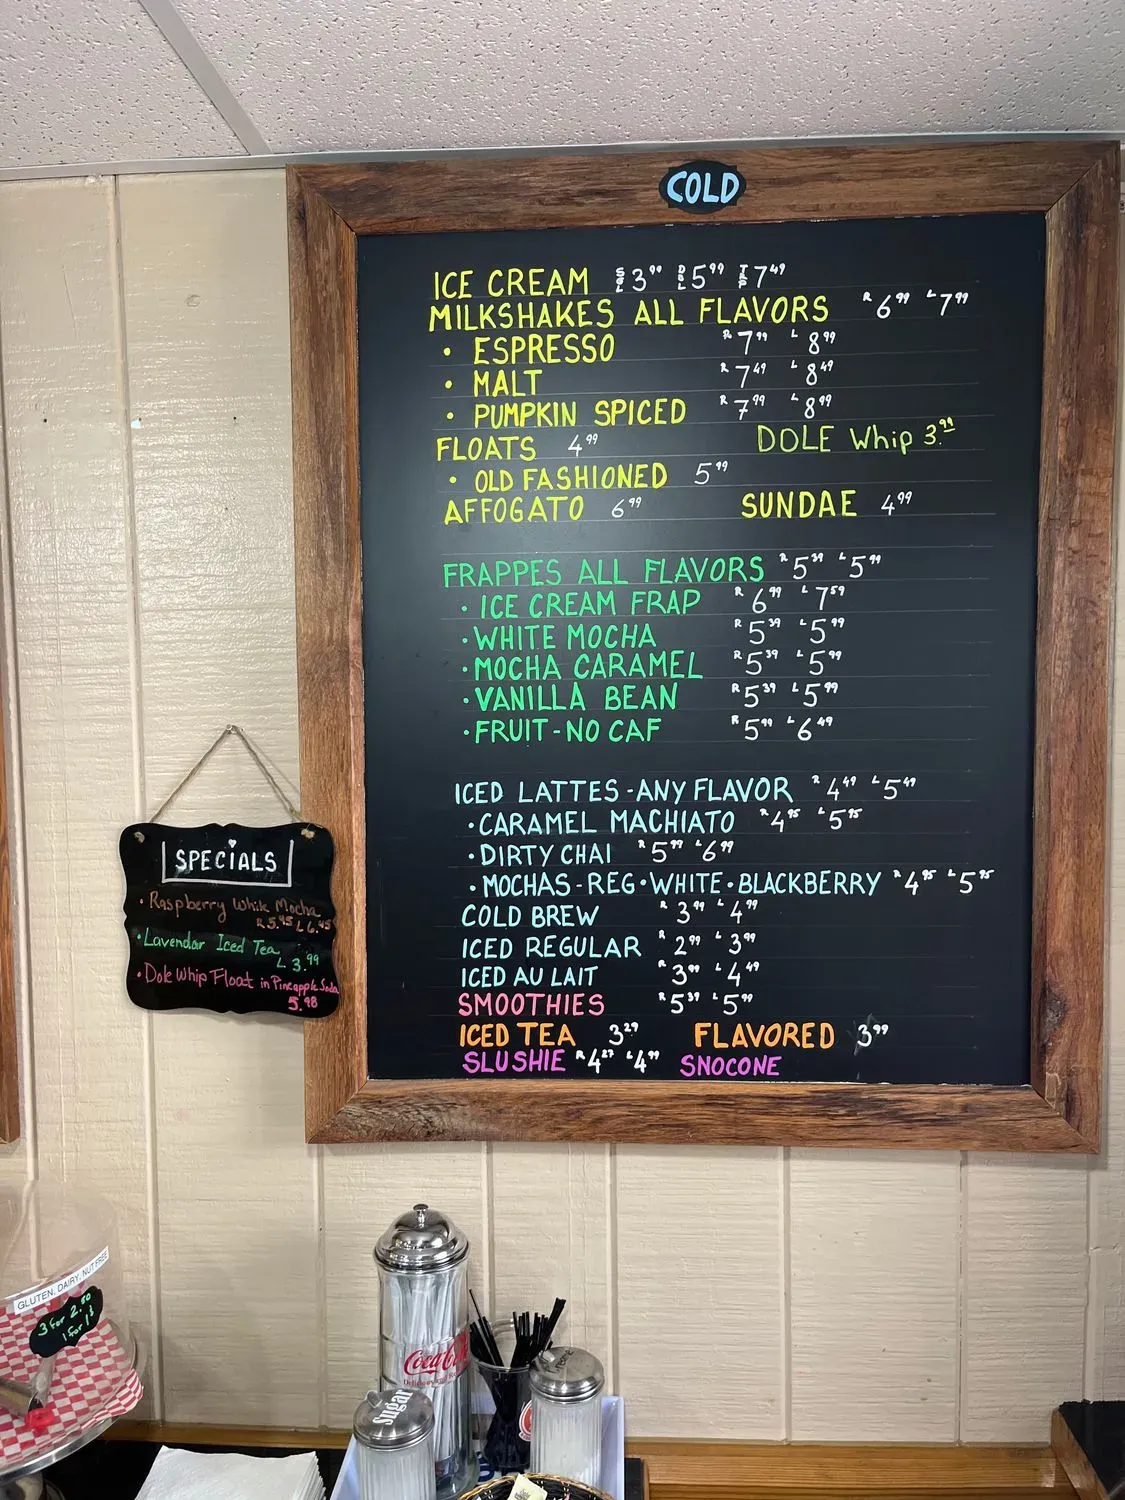 COLD
ICE CREAM SGL 3.99 DBL 5.99 TRP 7.49
MILKSHAKES ALL FLAVORS R 6.99 L 7.99
• ESPRESSO R 7.99 L 8.99
• MALT R 7.49 L 8.49
• PUMPKIN SPICED R 7.99 L 8.99
FLOATS 4.99 DOLE Whip 3.99
• OLD FASHIONED 5.99
AFFOGATO 6.99 SUNDAE 4.99
FRAPPES ALL FLAVORS R 5.39 L 5.99
• ICE CREAM FRAP R 6.99 L 7.59
• WHITE MOCHA R 5.39 L 5.99
• MOCHA CARAMEL R 5.39 L 5.99
• VANILLA BEAN R 5.39 L 5.99
• FRUIT-NO CAF R 5.99 L 6.49
ICED LATTES-ANY FLAVOR R 4.49 L 5.49
• CARAMEL MACHIATO R 4.95 L 5.95
• DIRTY CHAI R 5.99 L 6.99
• MOCHAS-REG•WHITE•BLACKBERRY R 4.95 L 5.95
COLD BREW R 3.99 L 4.99
ICED REGULAR R 2.99 L 3.99
ICED AU LAIT R 3.99 L 4.49
SMOOTHIES R 5.39 L 5.99
ICED TEA 3.29 FLAVORED 3.99
SLUSHIE R 4.27 L 4.99 SNOCONE
SPECIALS
• Raspberry White Mocha
R 5.45 L 6.45
• Lavendar Iced Tea
L 3.99
• Dole Whip Float in Pineapple Soda
5.98
GLUTEN, DAIRY, NUT FREE
3 for 2.80
1 for 1$
Coca-Cola
Sugar